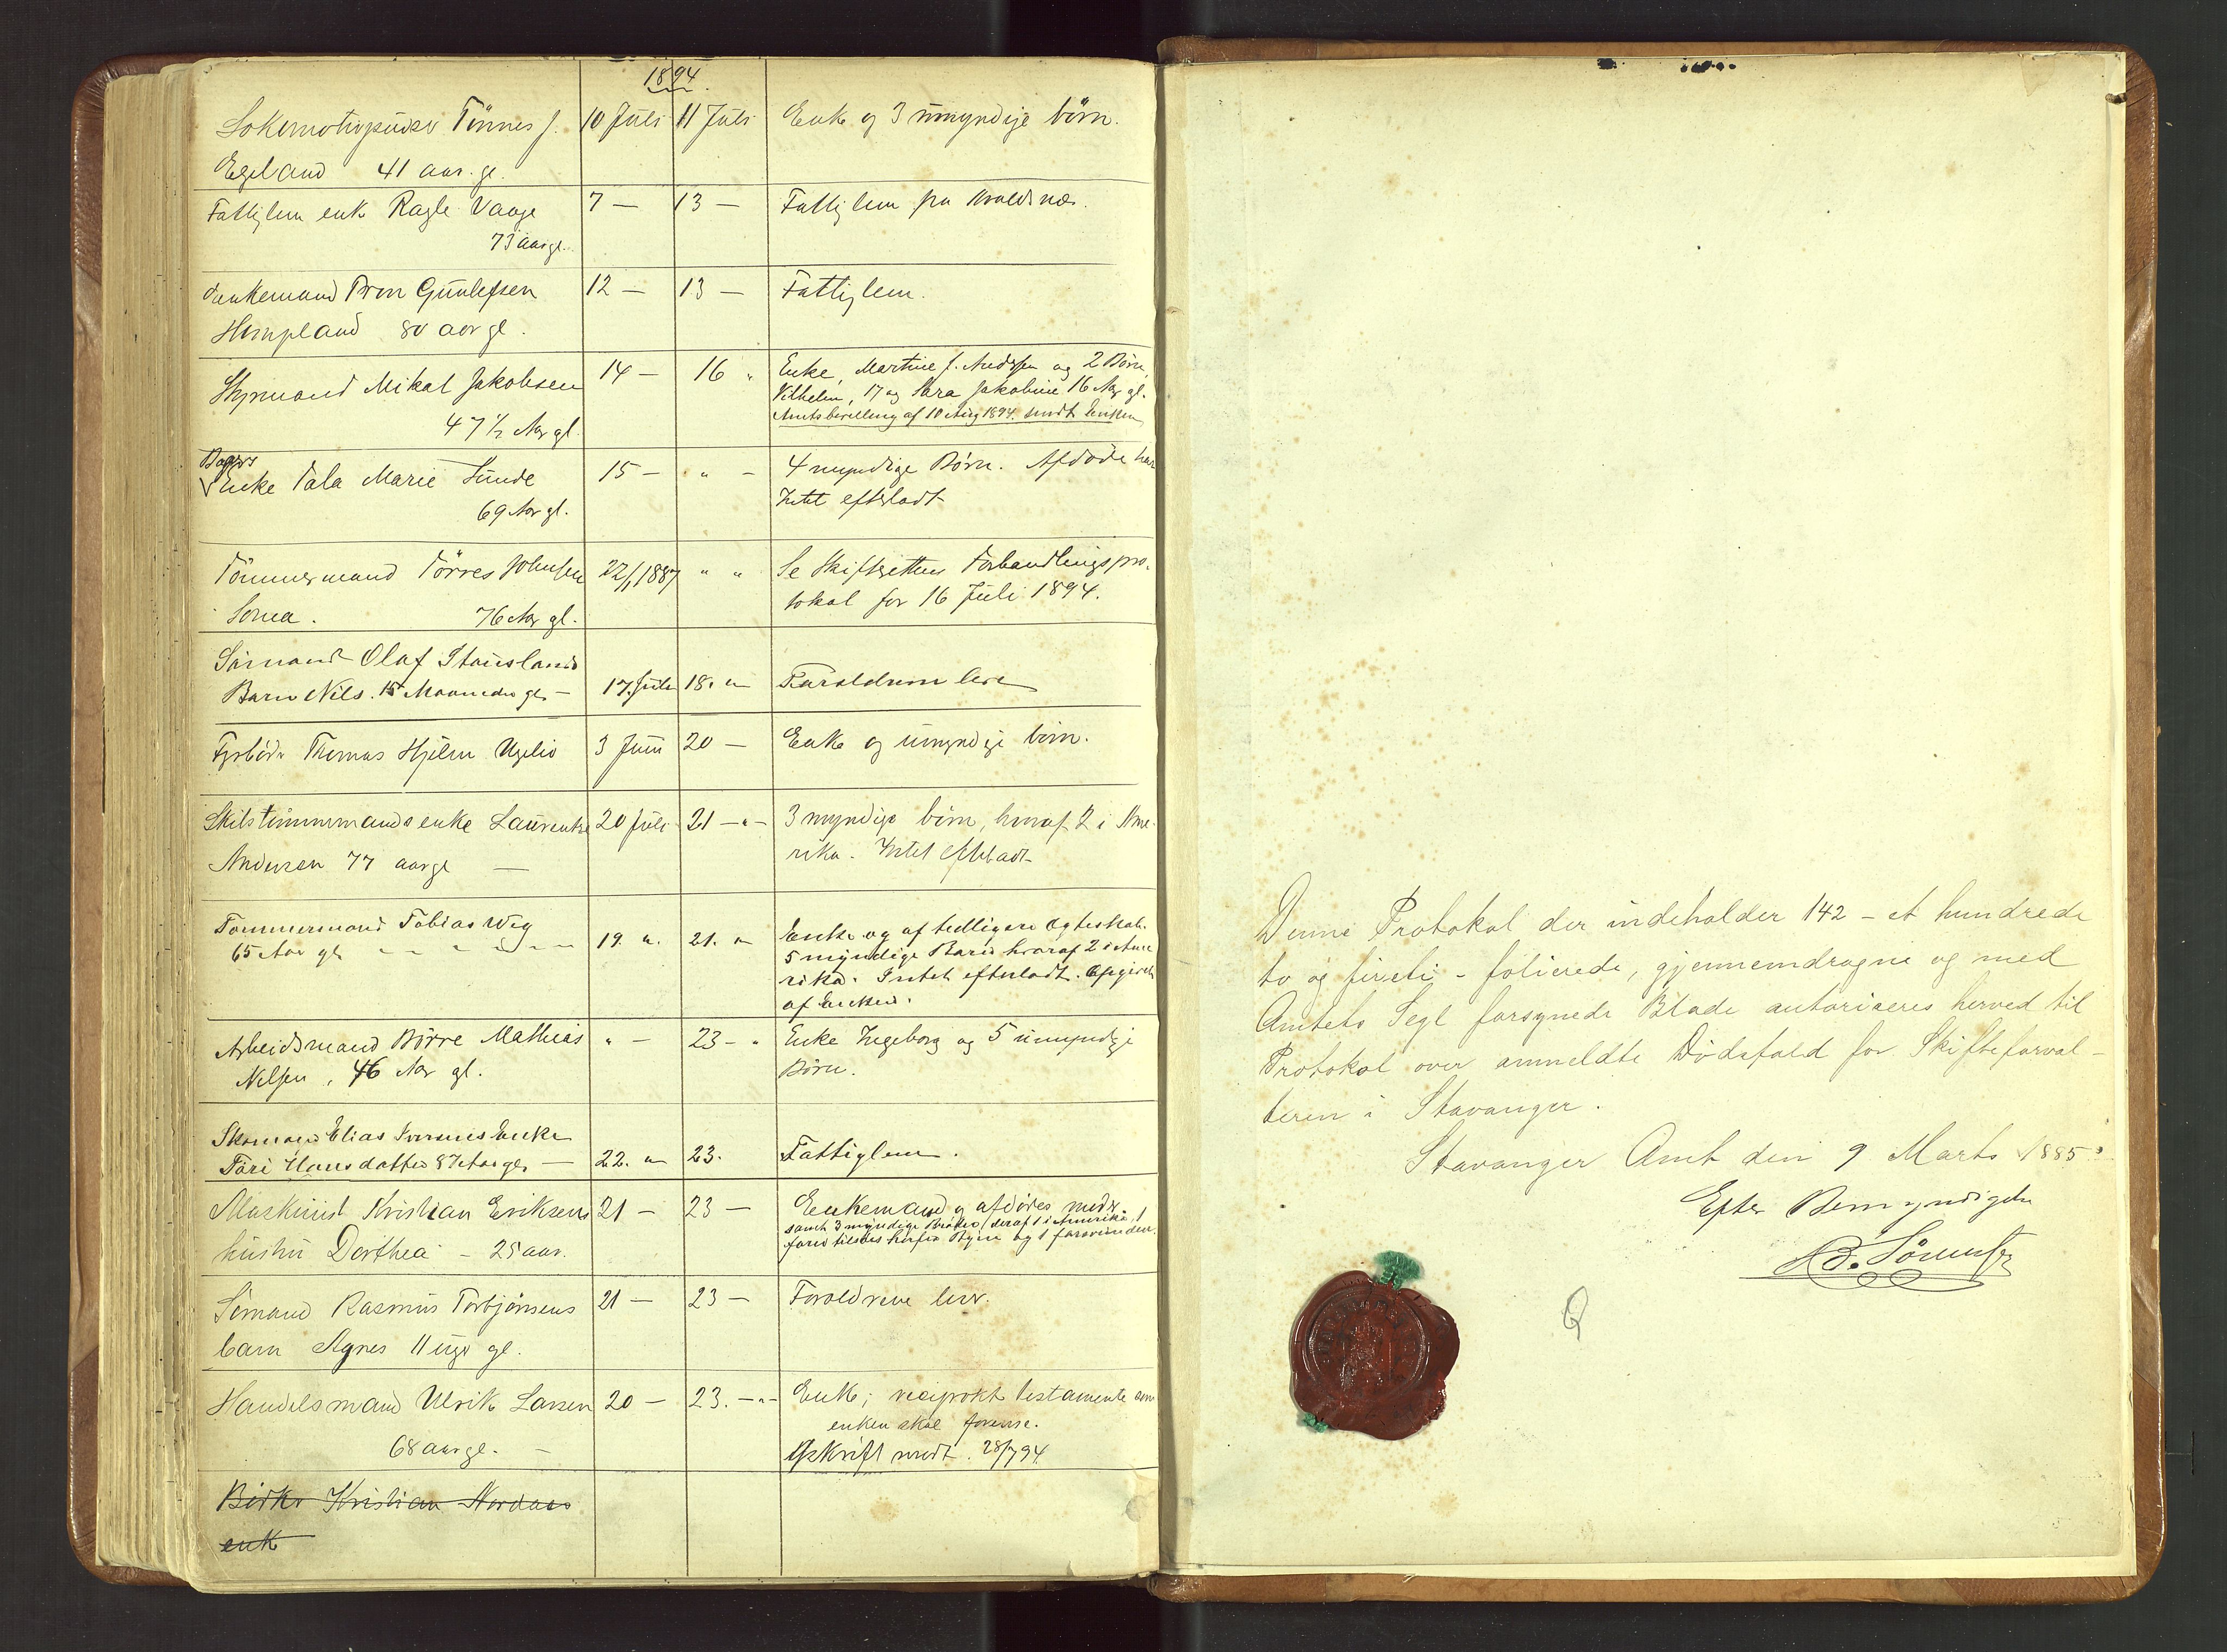 1894.
Lokomotivpudser Tönnes J. 10 Juli 11 Juli Enke og 3 umyndige börn.
Egeland 41 aar. gl.
Fattiglem enk Ragle Vaage 7 — 13 — Fattiglem fra
73 aar gl.
Enkemand Gunlefsen 12 — 13 — Fattiglem.
80 aar gl.
Styrmand Mikal Jakobsen 14 — 16 " Enke, Martine f. og 2 Börn,
47 1/2 Aar gl. Vilhelm, 17 og Sara Jakobine 16 Aar gl.
Amtsbevilling af 10 Aug 1894. sendt Enken
Enke Tala Marie Sunde 15 — " — 4 myndige Börn. Afdöde har
69 Aar gl. Intet efterladt
Tömmermand Törres Johnsen 22/1 1887 " " Se Skifterettens Forhandlingspro-
Soma. 76 Aar gl. tokol for 16 Juli 1894.
Sömand Olaf Stousland
Barn Nils. 15 Maaneder gl — 17. Juli 18. " Foraldrene leve
Fyrböder Thomas Hjelm Ugelid 3 Juni 20 — Enke og umyndige börn.
Skibstömmermandsenke Laurentze 20 Juli 21 — " — 3 myndige börn, hvoraf 2 i Ame-
Andersen 77 aar gl — rika. Intet efterladt
Tömmermand Tobias Weg 19. " 21. " Enke og af tidligere Egteskab
65 Aar gl 5 myndige Barn hvoraf 2 i Ame
rika. Intet efterladt. Opgivet
af Enken.
Arbeidsmand Börre Mathias " — 23 — " Enke Ingeborg og 5 umyndige
Nilsen, 46 Aar gl. Börn.
Skomager Elias Enke
Töri Hansdatter 87 Aar gl — 22. " 23. Fattiglem.
Maskinist Kristian Eriksens 21 — 23 — Enkemand og afdödes moder
samt 3 myndige deraf 1 i Amerika, 1
hustru Dorthea — 25 aar. Byen og 1 forsvunden.
Sömand Rasmus Torbjörnsens 21 — 23 — Foraldrene lever.
barn Agnes 11 uger gl.
Handelsmand Ulrik Larsen 20 — 23. — " — Enke; reciprokt testamente som
68 aar gl. — enken skal forevise.
Afskrift sendt. 28/7 94
Kristian Nordaas
enke
Denne Protokol der indeholder 142 — et hundrede
to og firti — folierede, gjennemdragne og med
Amtets Segl forsynede Blade autoriseres herved til
Protokol over anmeldte Dödsfald for Skifteforval-
teren i Stavanger.
Stavanger Amt den 9 Marts 1885.
Efter Bemyndigelse
Sörensen